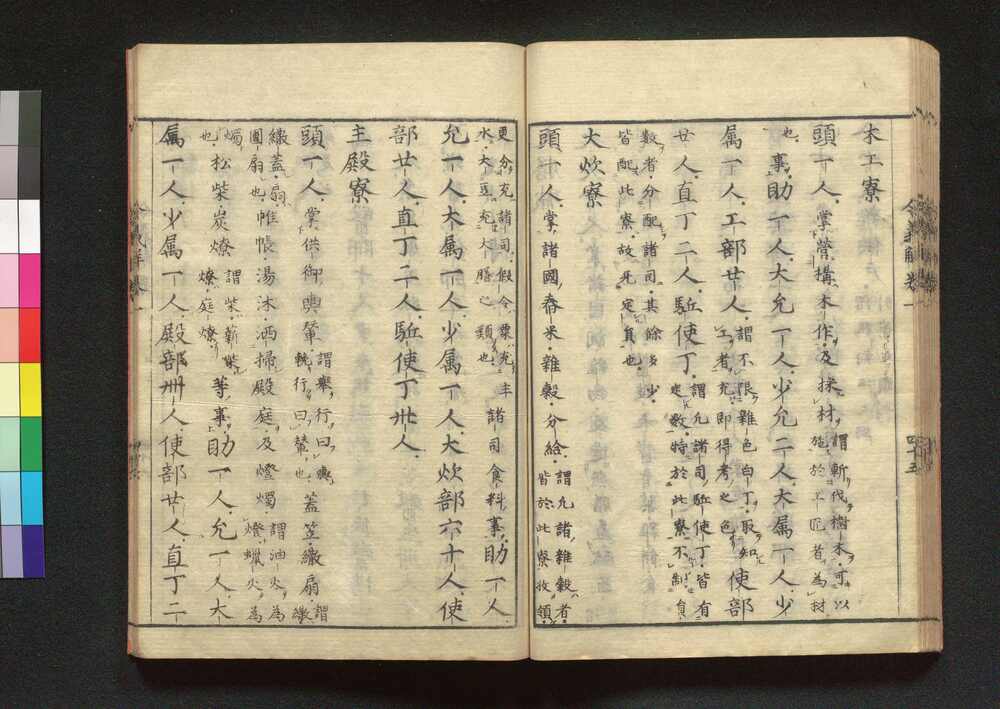 木工寮
頭一人掌營構木作及採材謂斬伐樹木可以施於工匠者為材
也事助一人大允一人少允二人大属一人少
属一人工部廿人謂不限雜色白丁取知工者充即得考之色使部
廿人直丁二人駈使丁謂凡諸司駈使丁皆有定数特於此寮不制員
数者分配諸司其餘多少皆配此寮故无定員也
大炊寮
頭一人掌諸國舂米雜穀分給謂凡諸雜穀者皆於此寮收領
更分充諸司假令粟充主水大豆充大膳之類也諸司食料事助一人
允一人大属一人少属一人大炊部六十人使
部廿人直丁二人駈使丁卅人
主殿寮
頭一人掌供御輿輦謂擧行曰輿輓行曰輦也蓋笠繖扇謂繖
繖蓋扇團扇也帷帳湯沐洒掃殿庭及燈燭謂油火為燈蠟火為
燭也松柴炭燎謂柴薪柴燎庭燎等事助一人允一人大
属一人少属一人殿部卌人使部廿人直丁二
令義解卷一
四十五